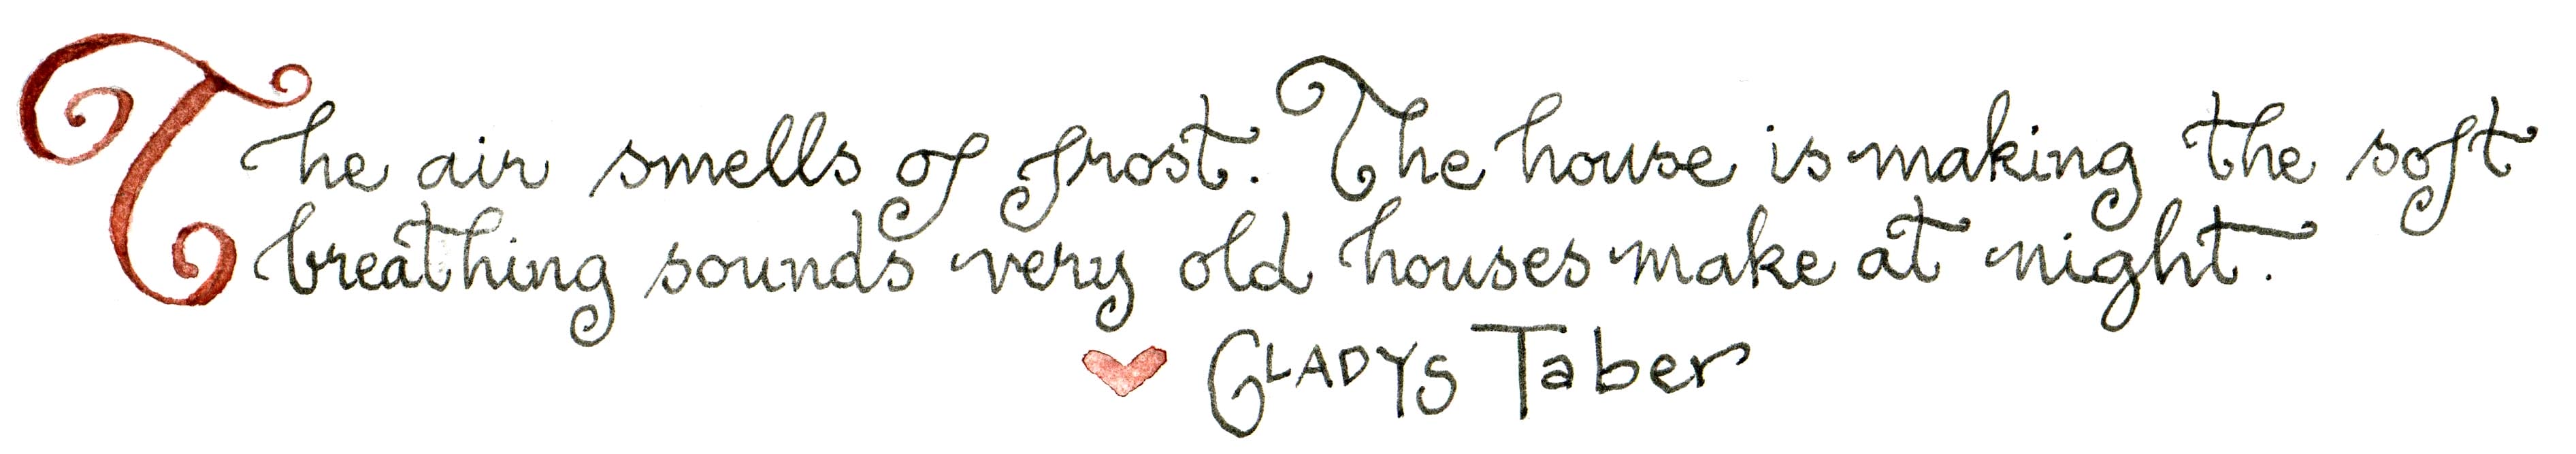 The air smells of frost. The house is making the soft
breathing sounds very old houses make at night.
♥ GLADYS Taber